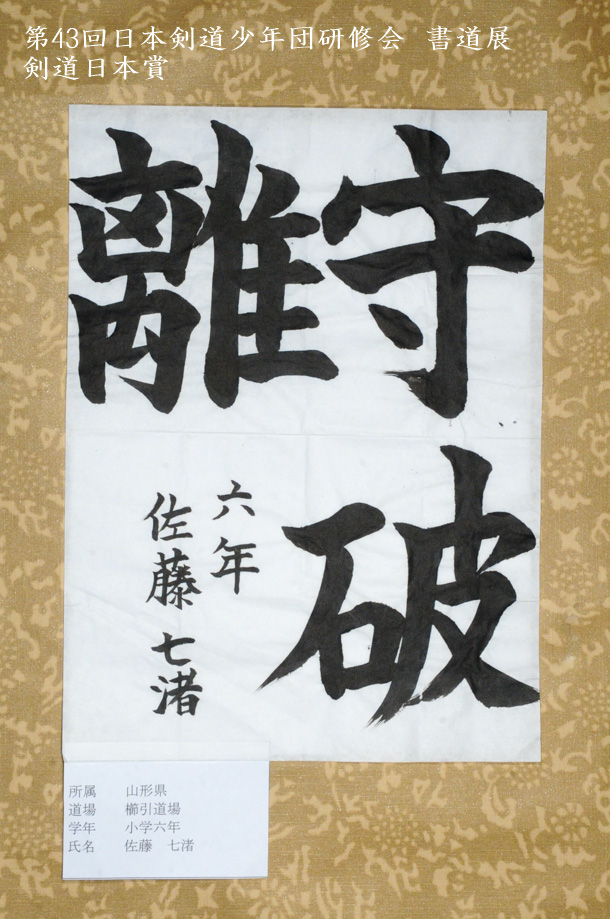 第43回日本剣道少年団研修会 書道展
剣道日本賞
守破
離
六年
佐藤七渚
所属 山形県
道場 櫛引道場
学年 小学六年
氏名 佐藤 七渚